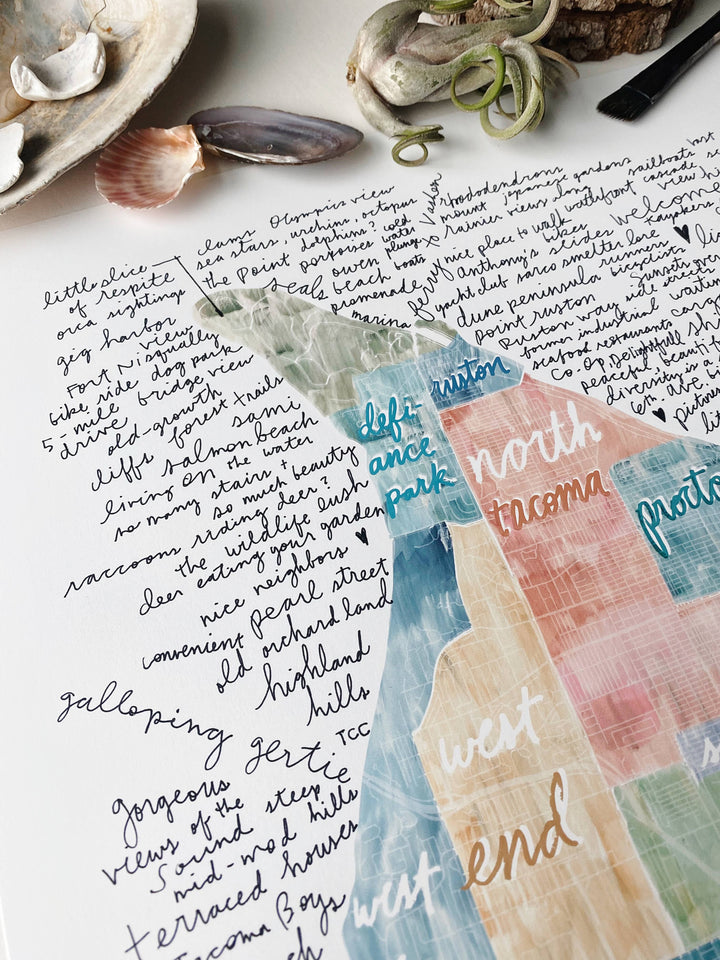 clams Olympics view
sea stars, urchins, octopus
the Point dolphins?
porpoises
seals
cold
water
plunge
Owen
beach
boats
promenade
marina
Vashon
ferry
rhododendrons
mount
rainier views
Japanese gardens
along
waterfront
sailboats
cascade
view
nice place to walk
bikes
welcome
anthony's
sliders
kayakers
yacht club
asarco smelter
lore
dune peninsula
runners
bicyclists
point ruston
sunsets over
Ruston way
side streets
former industrial
waiting
seafood restaurants
Co-Op,
Delightfull
peaceful,
beautif
diversity is a
6th ave
little slice
of respite
orca sightings
gig harbor
view
Fort Nisqually
bike ride dog park
5-mile bridge view
drive
old-growth
cliffs forest trails
sami
salmon beach
living on the water
so many stairs +
so much beauty
raccoons riding deer?
the wildlife lush
deer eating your garden
nice neighbors ♥
convenient pearl street
old orchard land
highland
hills
galloping
gertie
TCC
gorgeous
views of the
Sound steep
mid-mod hills
terraced houses
Tacoma Boys
defi-
ance
park
ruston
north
tacoma
procto
west
end
west